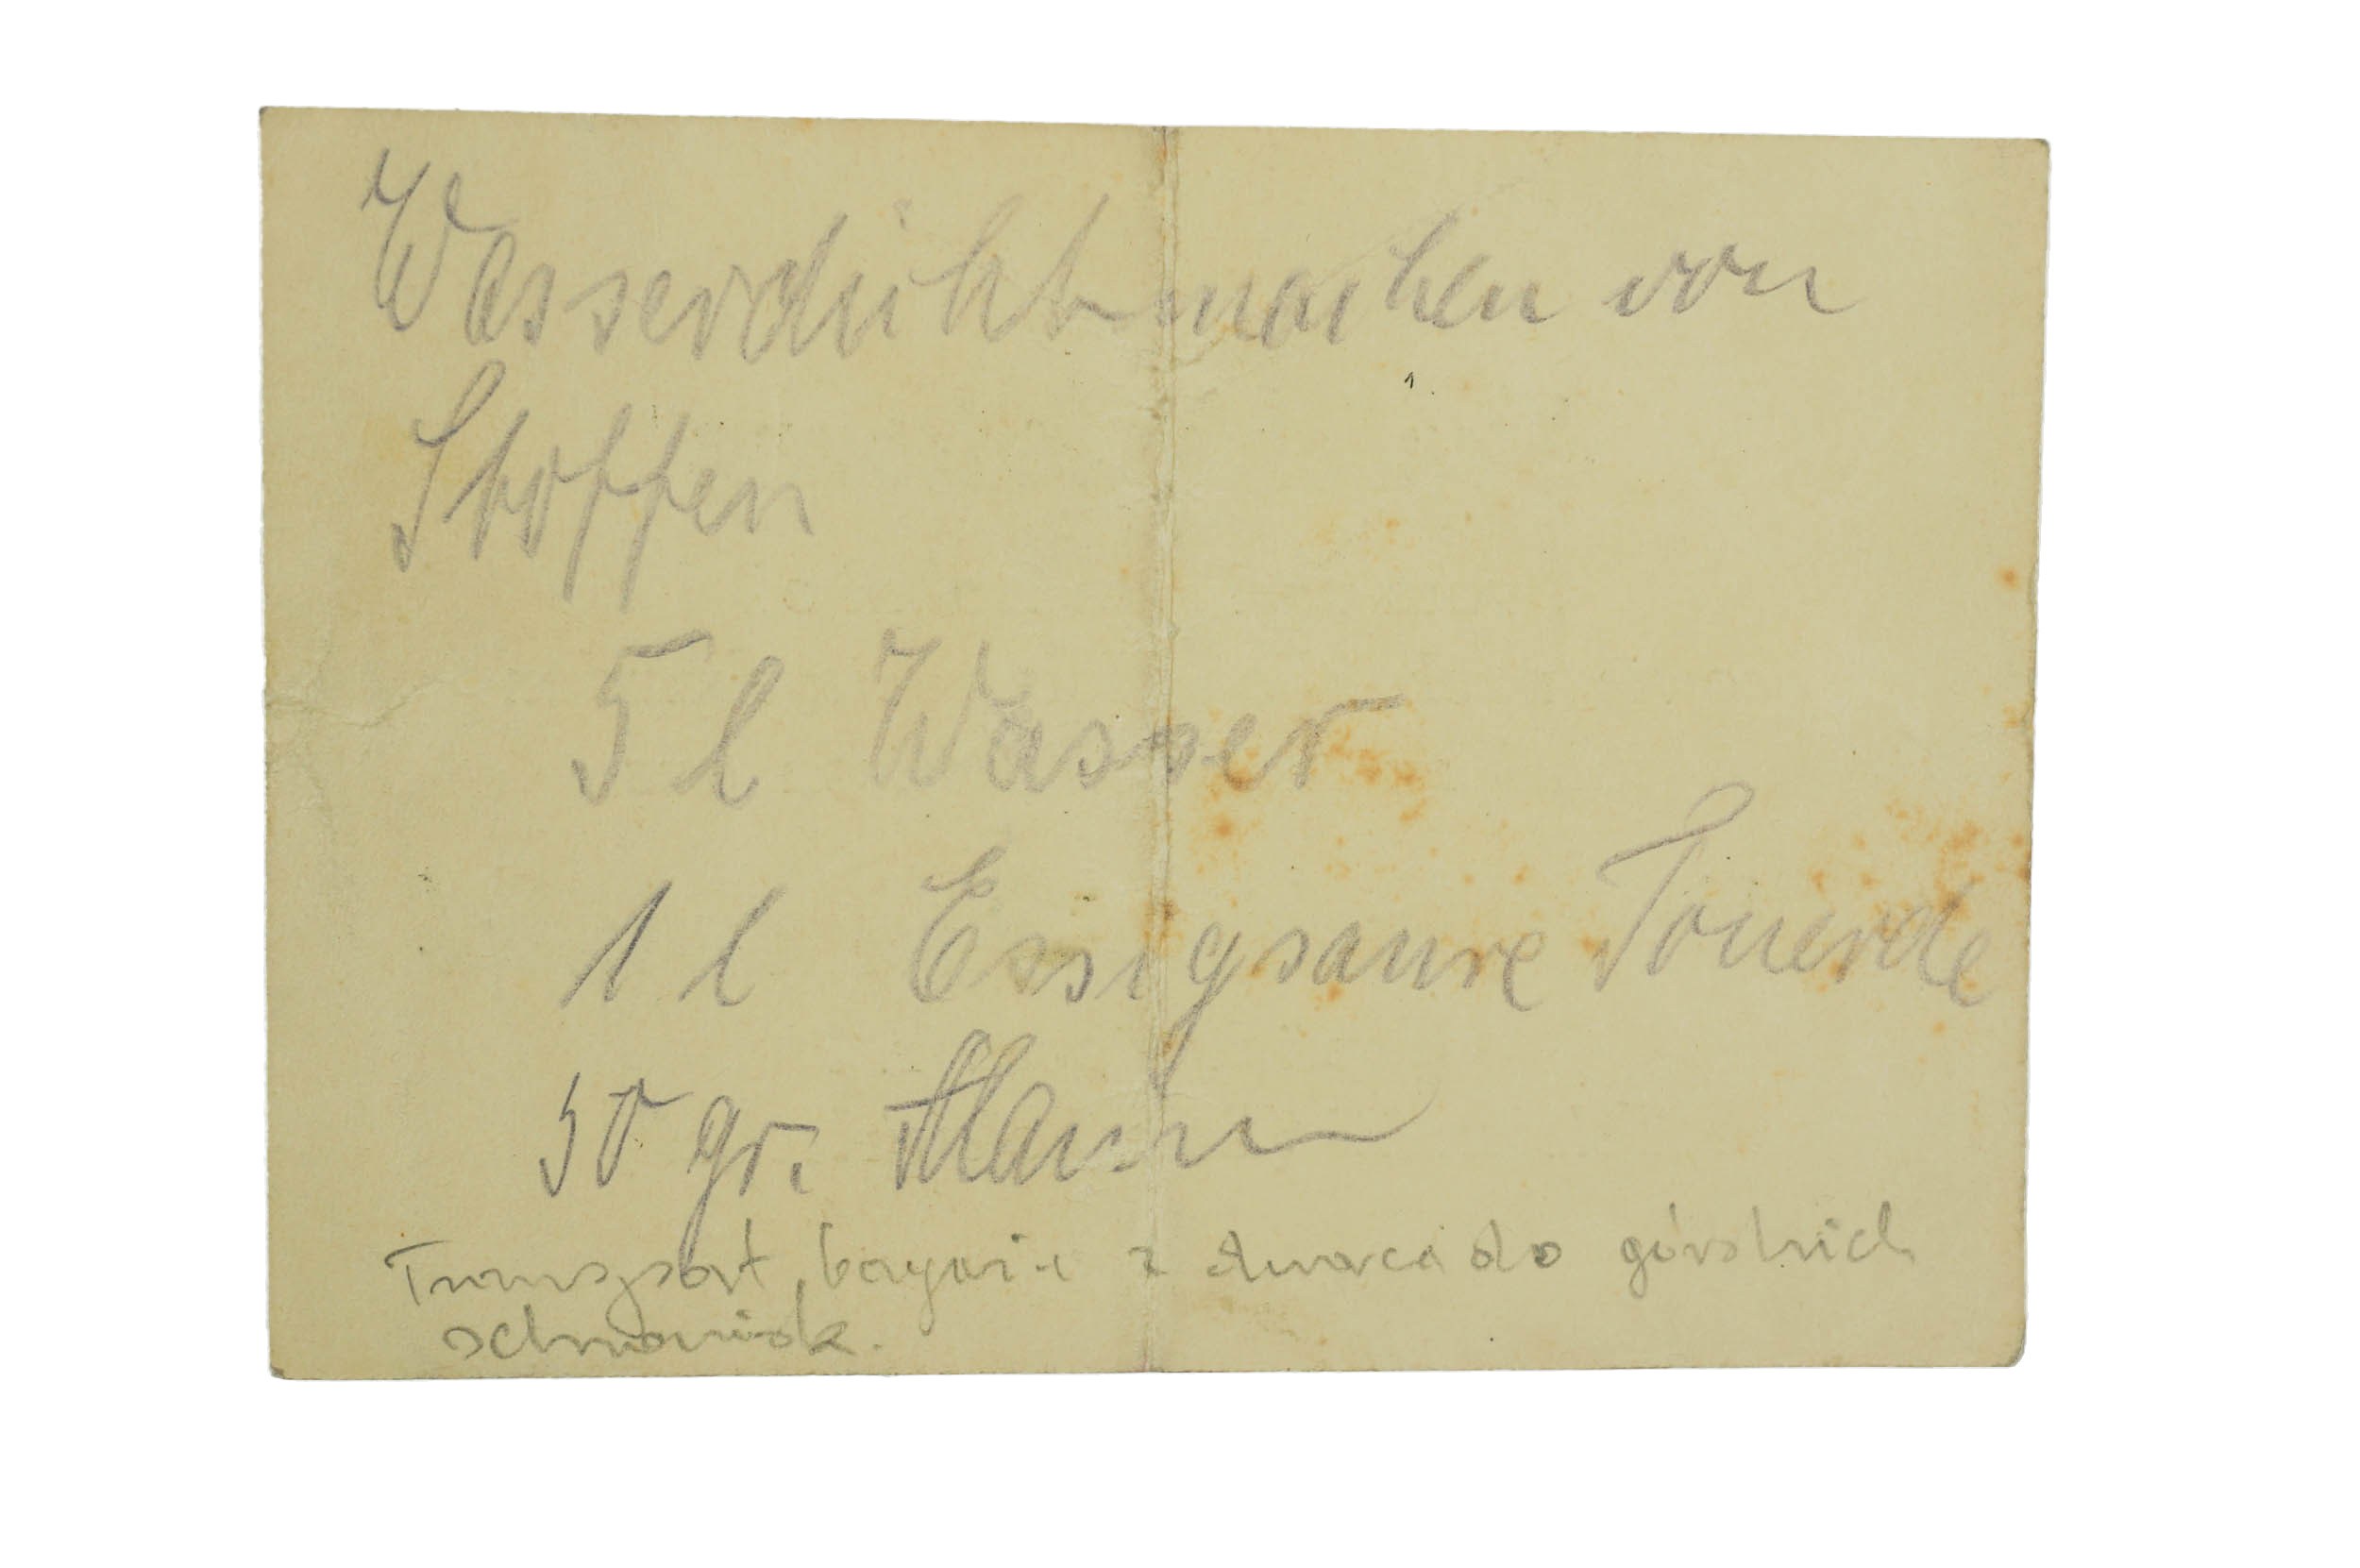 Wasserdichtmachen von
Stoffen
5 l Wasser
1 l Essigsaure Tonerde
50 gr. Alaun
Transport bagaży z dworca do górskich
schronisk.